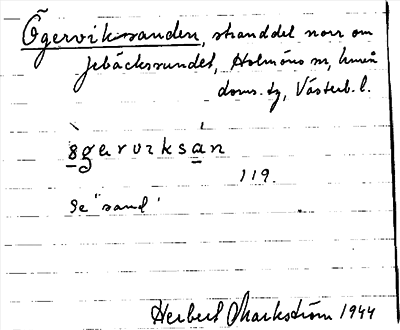 Ögerviksanden, stranddel norr om
Jebäckssundet, Holmöns sn, Umeå
doms. tg, Västerb. l.
ȣgervɪksan
119.
Se "sand"
Herbert Markström 1944